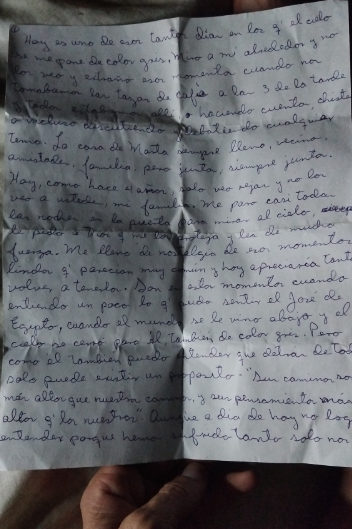 Hoy es uno de esos tantos días en los q' el cielo
se me pone de color gris. Miro a mi alrededor y no
los veo y extraño esos momentos cuando nos
tomabamos las tazas de café a las 3 de la tarde
haciendo cuento, chiste
o incluso discutiendo debatiendo cualquier
tema. La casa de Marta siempre llena, vecino,
amistades, familia, pero junta, siempre junta.
Hoy, como hace 4 años, solo veo rejas y no los
veo a ustedes, mi familia. Me paro casi todas
las noches en la puerta para mirar el cielo,
le pido a Dios q' me los proteja y les de mucha
fuerza. Me lleno de nostalgia de esos momentos
lindos q' parecian muy comun y hoy apreciaria tanto
volver a tenerlos. Son en estos momentos cuando
entiendo un poco lo q' pudo sentir el José de
Egipto, cuando el mundo se le vino abajo y el
cielo se cerró para el tambien de color gris. Pero
como el tambien puedo entender que detras de todo
solo puede existir un proposito: "Sus caminos son
más altos que nuestros caminos, y sus pensamientos más
altos q' los nuestros". Aunque a dia de hoy no logro
entender porque hemos sufrido tanto solo nos